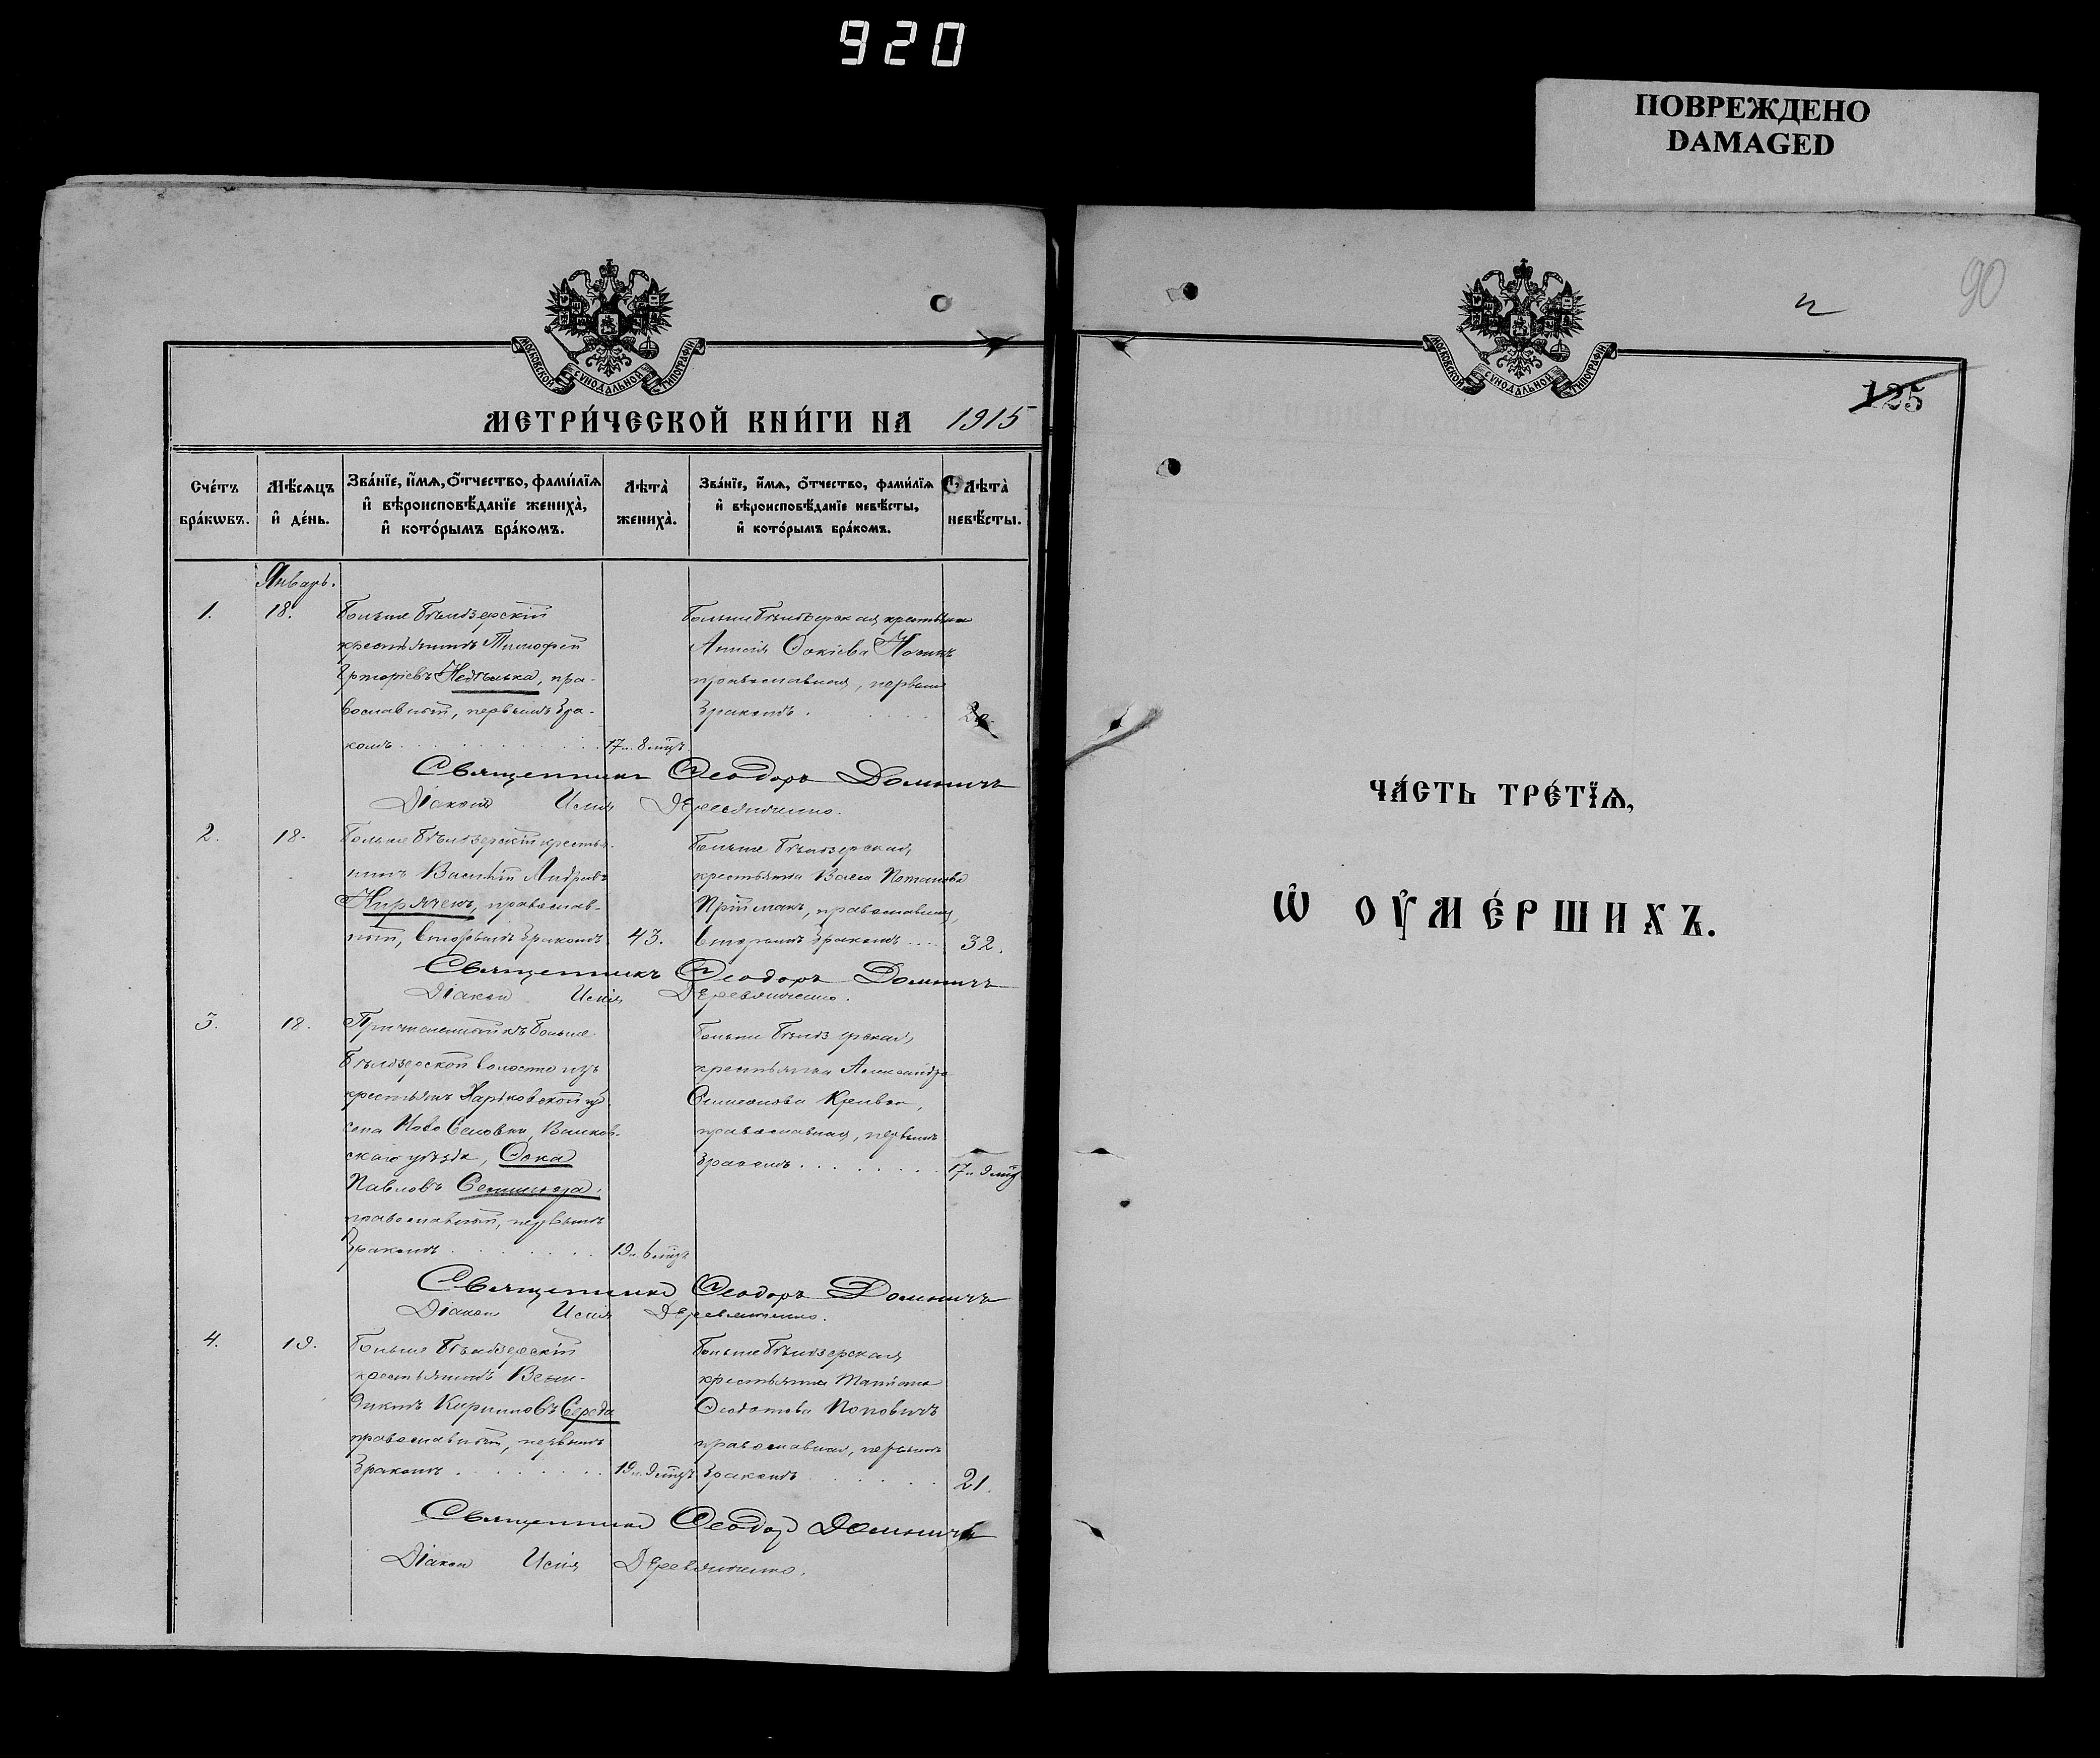 920
ПОВРЕЖДЕНО
DAMAGED
МОСКОВСКОЙ СѴНОДАЛЬНОЙ ТИПОГРАФІИ
МЕТРИ́ЧЕСКОЙ КНИ́ГИ НА 1915
Сче́тъ бра́кѡвъ.
Мѣ́сѧцъ и҆ де́нь.
Зва́нїе, и҆́мѧ, ѻ҆́тчество, фами́лїѧ и҆ вѣроисповѣ́данїе жениха̀, и҆ кото́рымъ бра́комъ.
Лѣ́та̀ жениха̀.
Зва́нїе, и҆́мѧ, ѻ҆́тчество, фами́лїѧ и҆ вѣроисповѣ́данїе невѣ́сты, и҆ кото́рымъ бра́комъ.
Лѣ́та̀ невѣ́сты.
Январь.
1.
18.
Больше Бѣлозерскій
крестьянинъ Тимофей
Григорьевъ, пра-
вославный, первымъ бра-
комъ
17 л. 8 мцъ
Больше Бѣлозерская крестьянка
Анисія
православная, первымъ
бракомъ
20
Священникъ Ѳеодоръ Домничъ
Діаконъ Исаія Деревянченко.
2.
18.
Больше Бѣлозерскій крестья-
нинъ Василій Андреевъ
Кирячекъ, православ-
ный, вторымъ бракомъ
43.
Больше Бѣлозерская
крестьянка Васса Потапова
Пріймакъ, православная,
вторымъ бракомъ
32.
Священникъ Ѳеодоръ Домничъ
Діаконъ Исаія Деревянченко.
3.
18.
Причисленный къ Больше
Бѣлозерской волости изъ
крестьянъ Харьковской губ.
села Ново Селовки, Валков-
скаго уѣзда, Ѳока
Павловъ
православный, первымъ
бракомъ
19 л. 6 мцъ
Больше Бѣлозерская
крестьянка Александра
Симеонова
православная, первымъ
бракомъ
17 л. 9 мцъ
Священникъ Ѳеодоръ Домничъ
Діаконъ Исаія Деревянченко.
4.
19.
Больше Бѣлозерскій
крестьянинъ Вени-
диктъ Кирилловъ Середа
православный, первымъ
бракомъ
19 л. 9 мцъ
Больше Бѣлозерская
крестьянка Татіана
Ѳеодотова Поповичъ
православная, первымъ
бракомъ
21.
Священникъ Ѳеодоръ Домничъ
Діаконъ Исаія Деревянченко.
90
МОСКОВСКОЙ СѴНОДАЛЬНОЙ ТИПОГРАФІИ
125
ЧА́СТЬ ТРЕ́ТЇѦ,
Ѡ҆ ОУ҆МЕ́РШИХЪ.